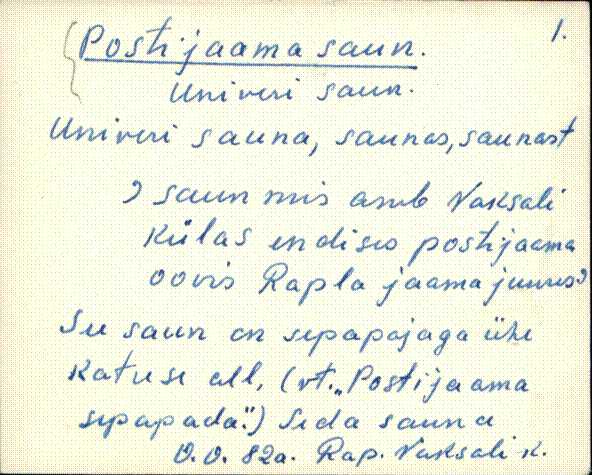 1.
Postijaama saun.
Univeri saun.
Univeri sauna, saunas, saunast
saun mis asub Vaksali
külas endises postijaama
oovis Rapla jaama juures
See saun on sepapajaga ühe
katuse all, (vt. „Postijaama
sepapada“.) Seda sauna
O.O. 82a. Rap. Vaksali k.